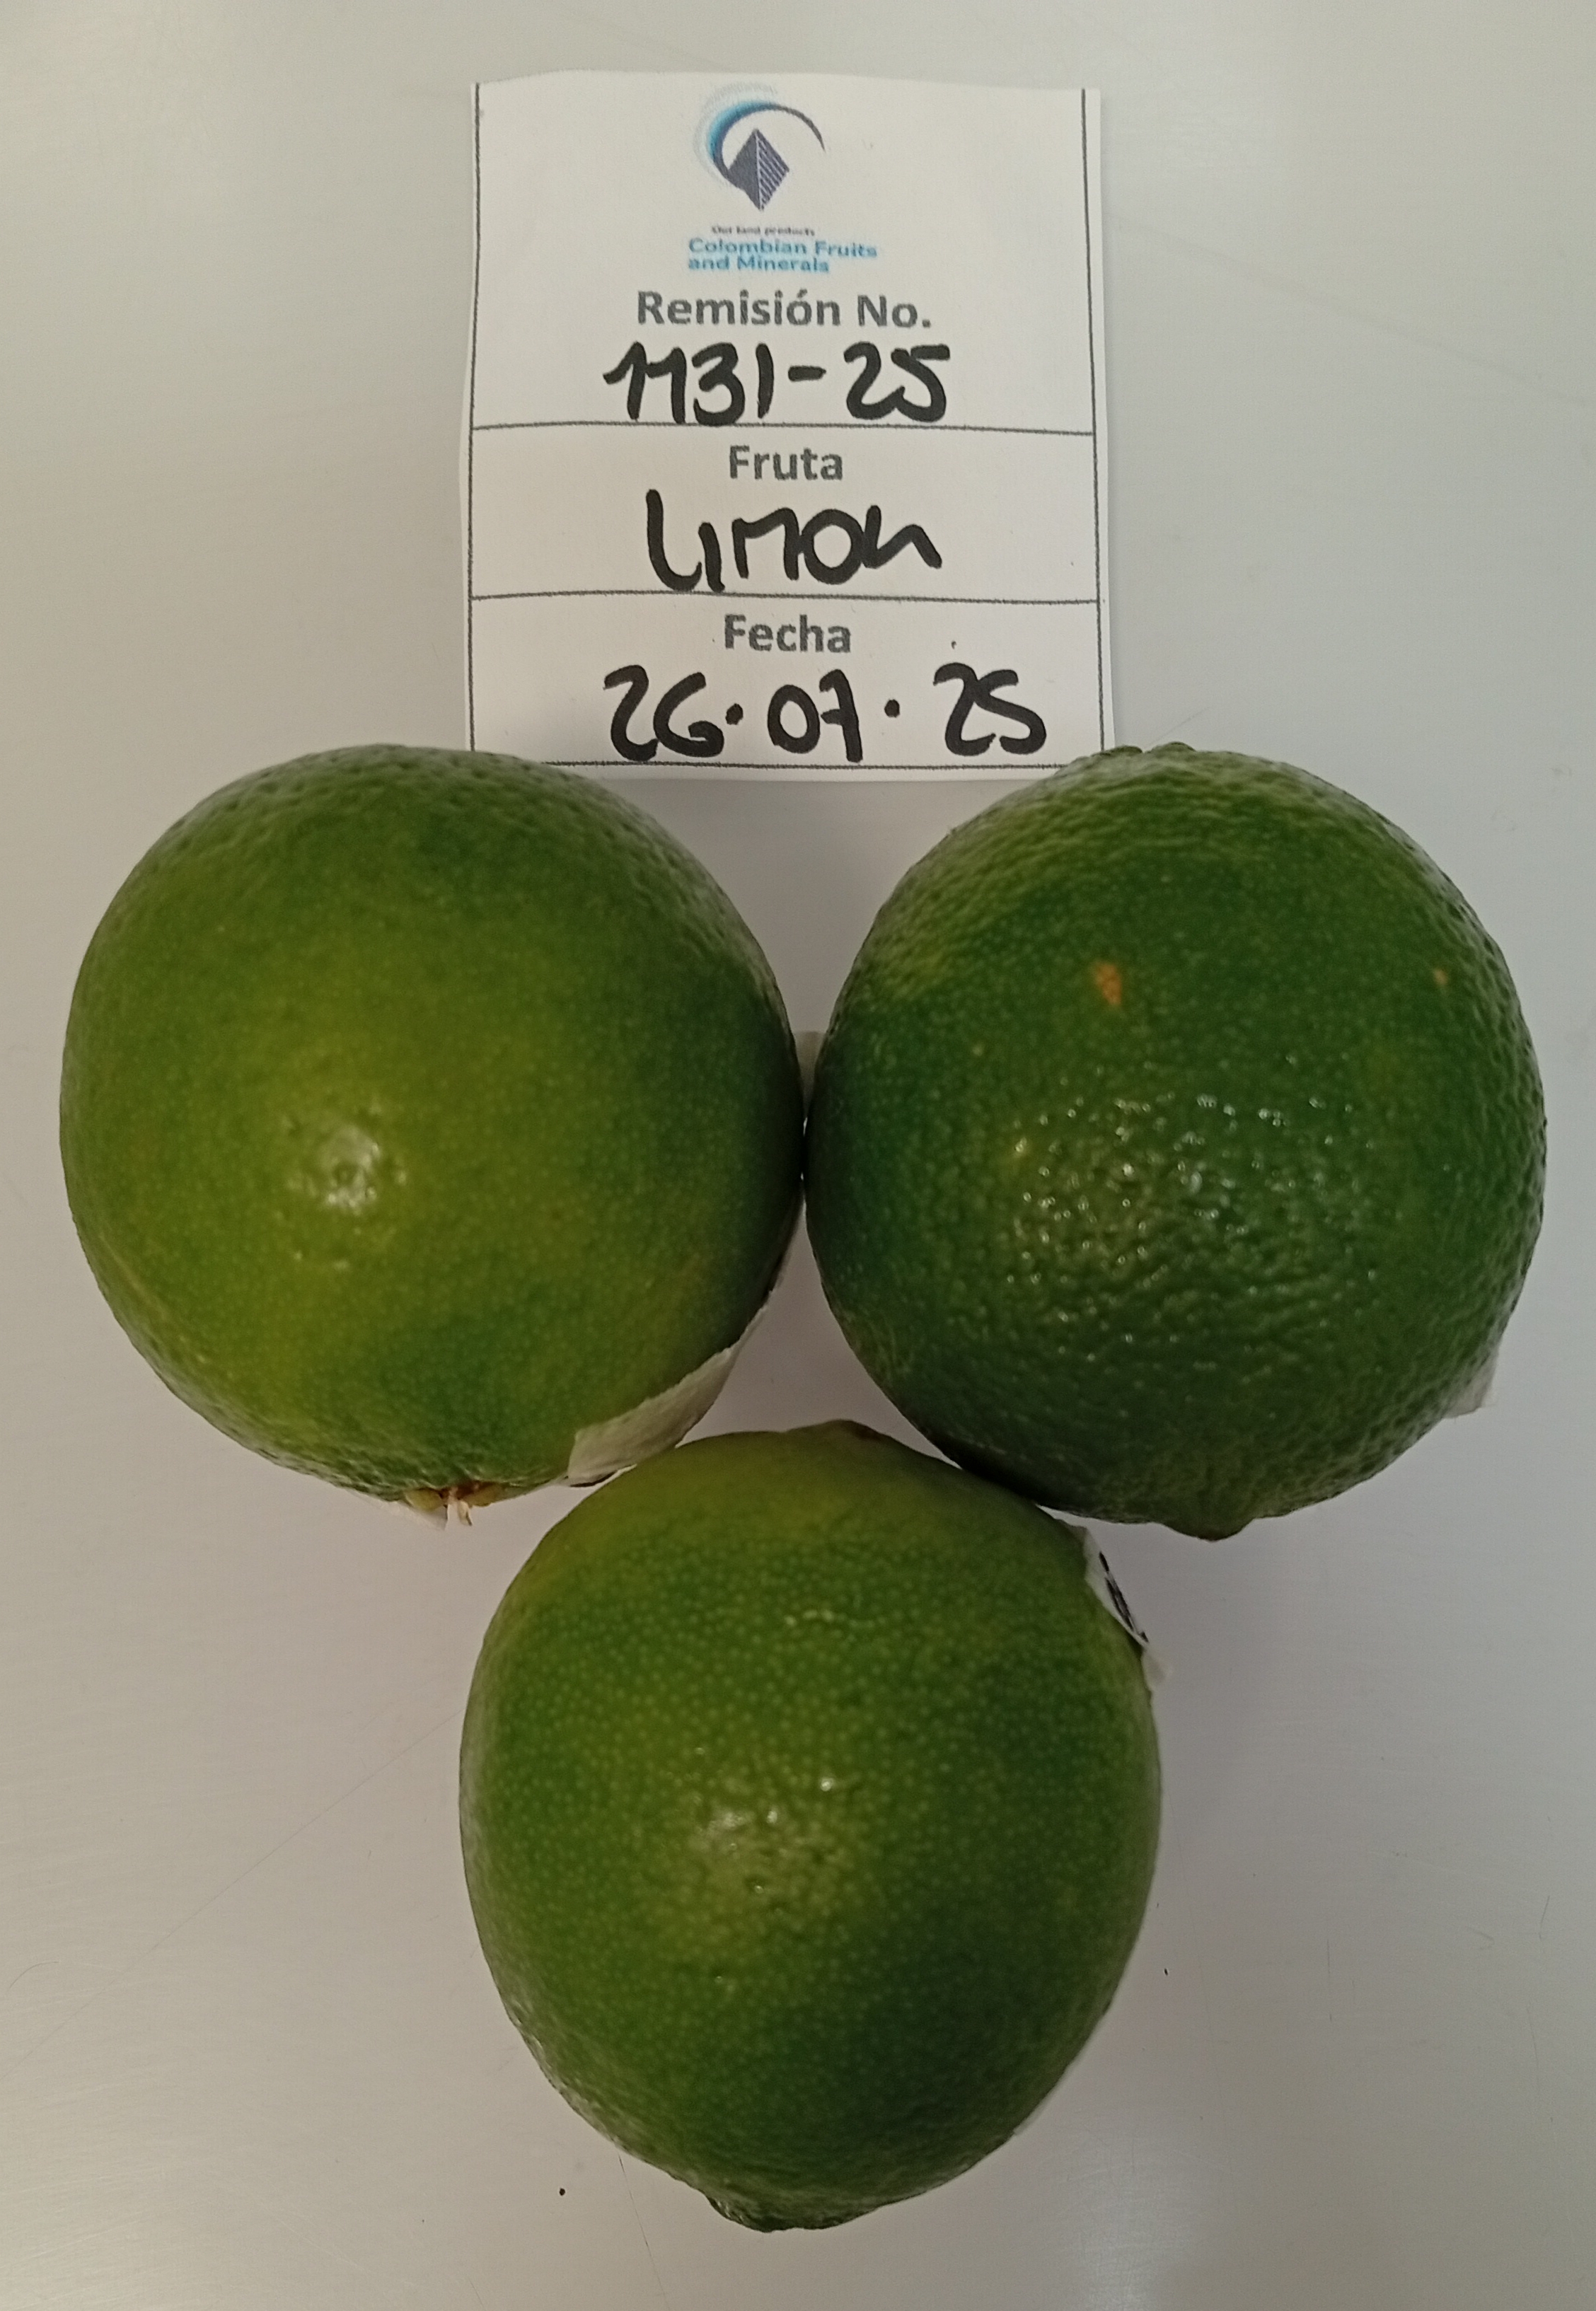 Our land products
Colombian Fruits
and Minerals
Remisión No.
1131-25
Fruta
Limon
Fecha
26·07·25